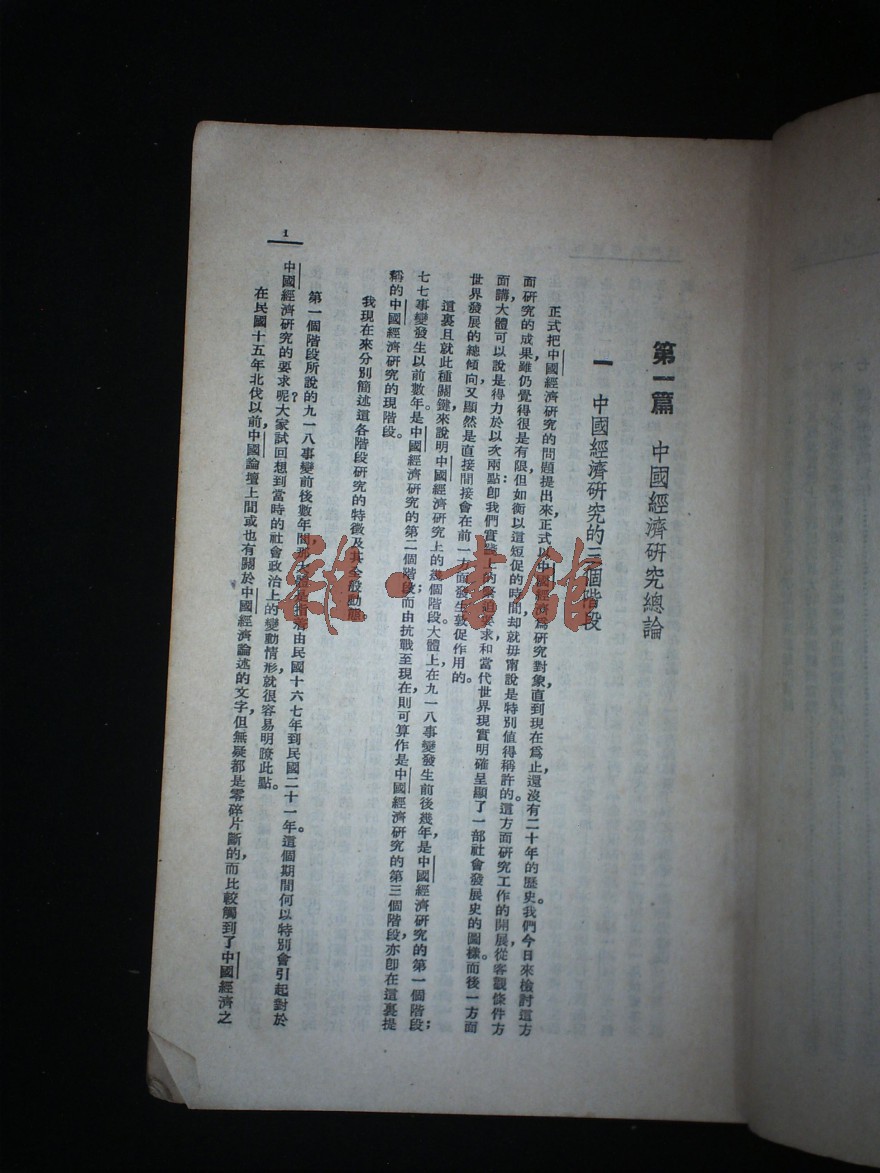 第一篇 中國經濟研究總論
一 中國經濟研究的三個階段
正式把中國經濟研究的問題提出來,正式以中國經濟爲研究對象,直到現在爲止,還沒有二十年的歷史。我們今日來檢討這方
面研究的成果,雖仍覺得很是有限,但如衡以這短促的時間,却就毋甯說是特別值得稱許的。這方面研究工作的開展,從客觀條件方
面講,大體可以說是得力於以次兩點:卽我們實踐上的緊迫要求,和當代世界現實明確呈顯了一部社會發展史的圖樣。而後一方面
世界發展的總傾向,又顯然是直接間接會在前一方面發生敦促作用的。
這裏且就此種關鍵,來說明中國經濟研究上的幾個階段。大體上,在九一八事變發生前後幾年,是中國經濟研究的第一個階段;
七七事變發生以前數年,是中國經濟研究的第二個階段;而由抗戰至現在,則可算作是中國經濟研究的第三個階段,亦卽在這裏提
稱的中國經濟研究的現階段。
我現在來分別簡述這各階段研究的特徵及其全般動態。
第一個階段所說的九一八事變前後數年間,那大體是指着由民國十六七年到民國二十一年。這個期間何以特別會引起對於
中國經濟研究的要求呢?大家試回想到當時的社會政治上的變動情形,就很容易明瞭此點。
在民國十五年北伐以前,中國論壇上間或也有關於中國經濟論述的文字,但無疑都是零碎片斷的,而比較觸到了中國經濟之
1
雜·書館